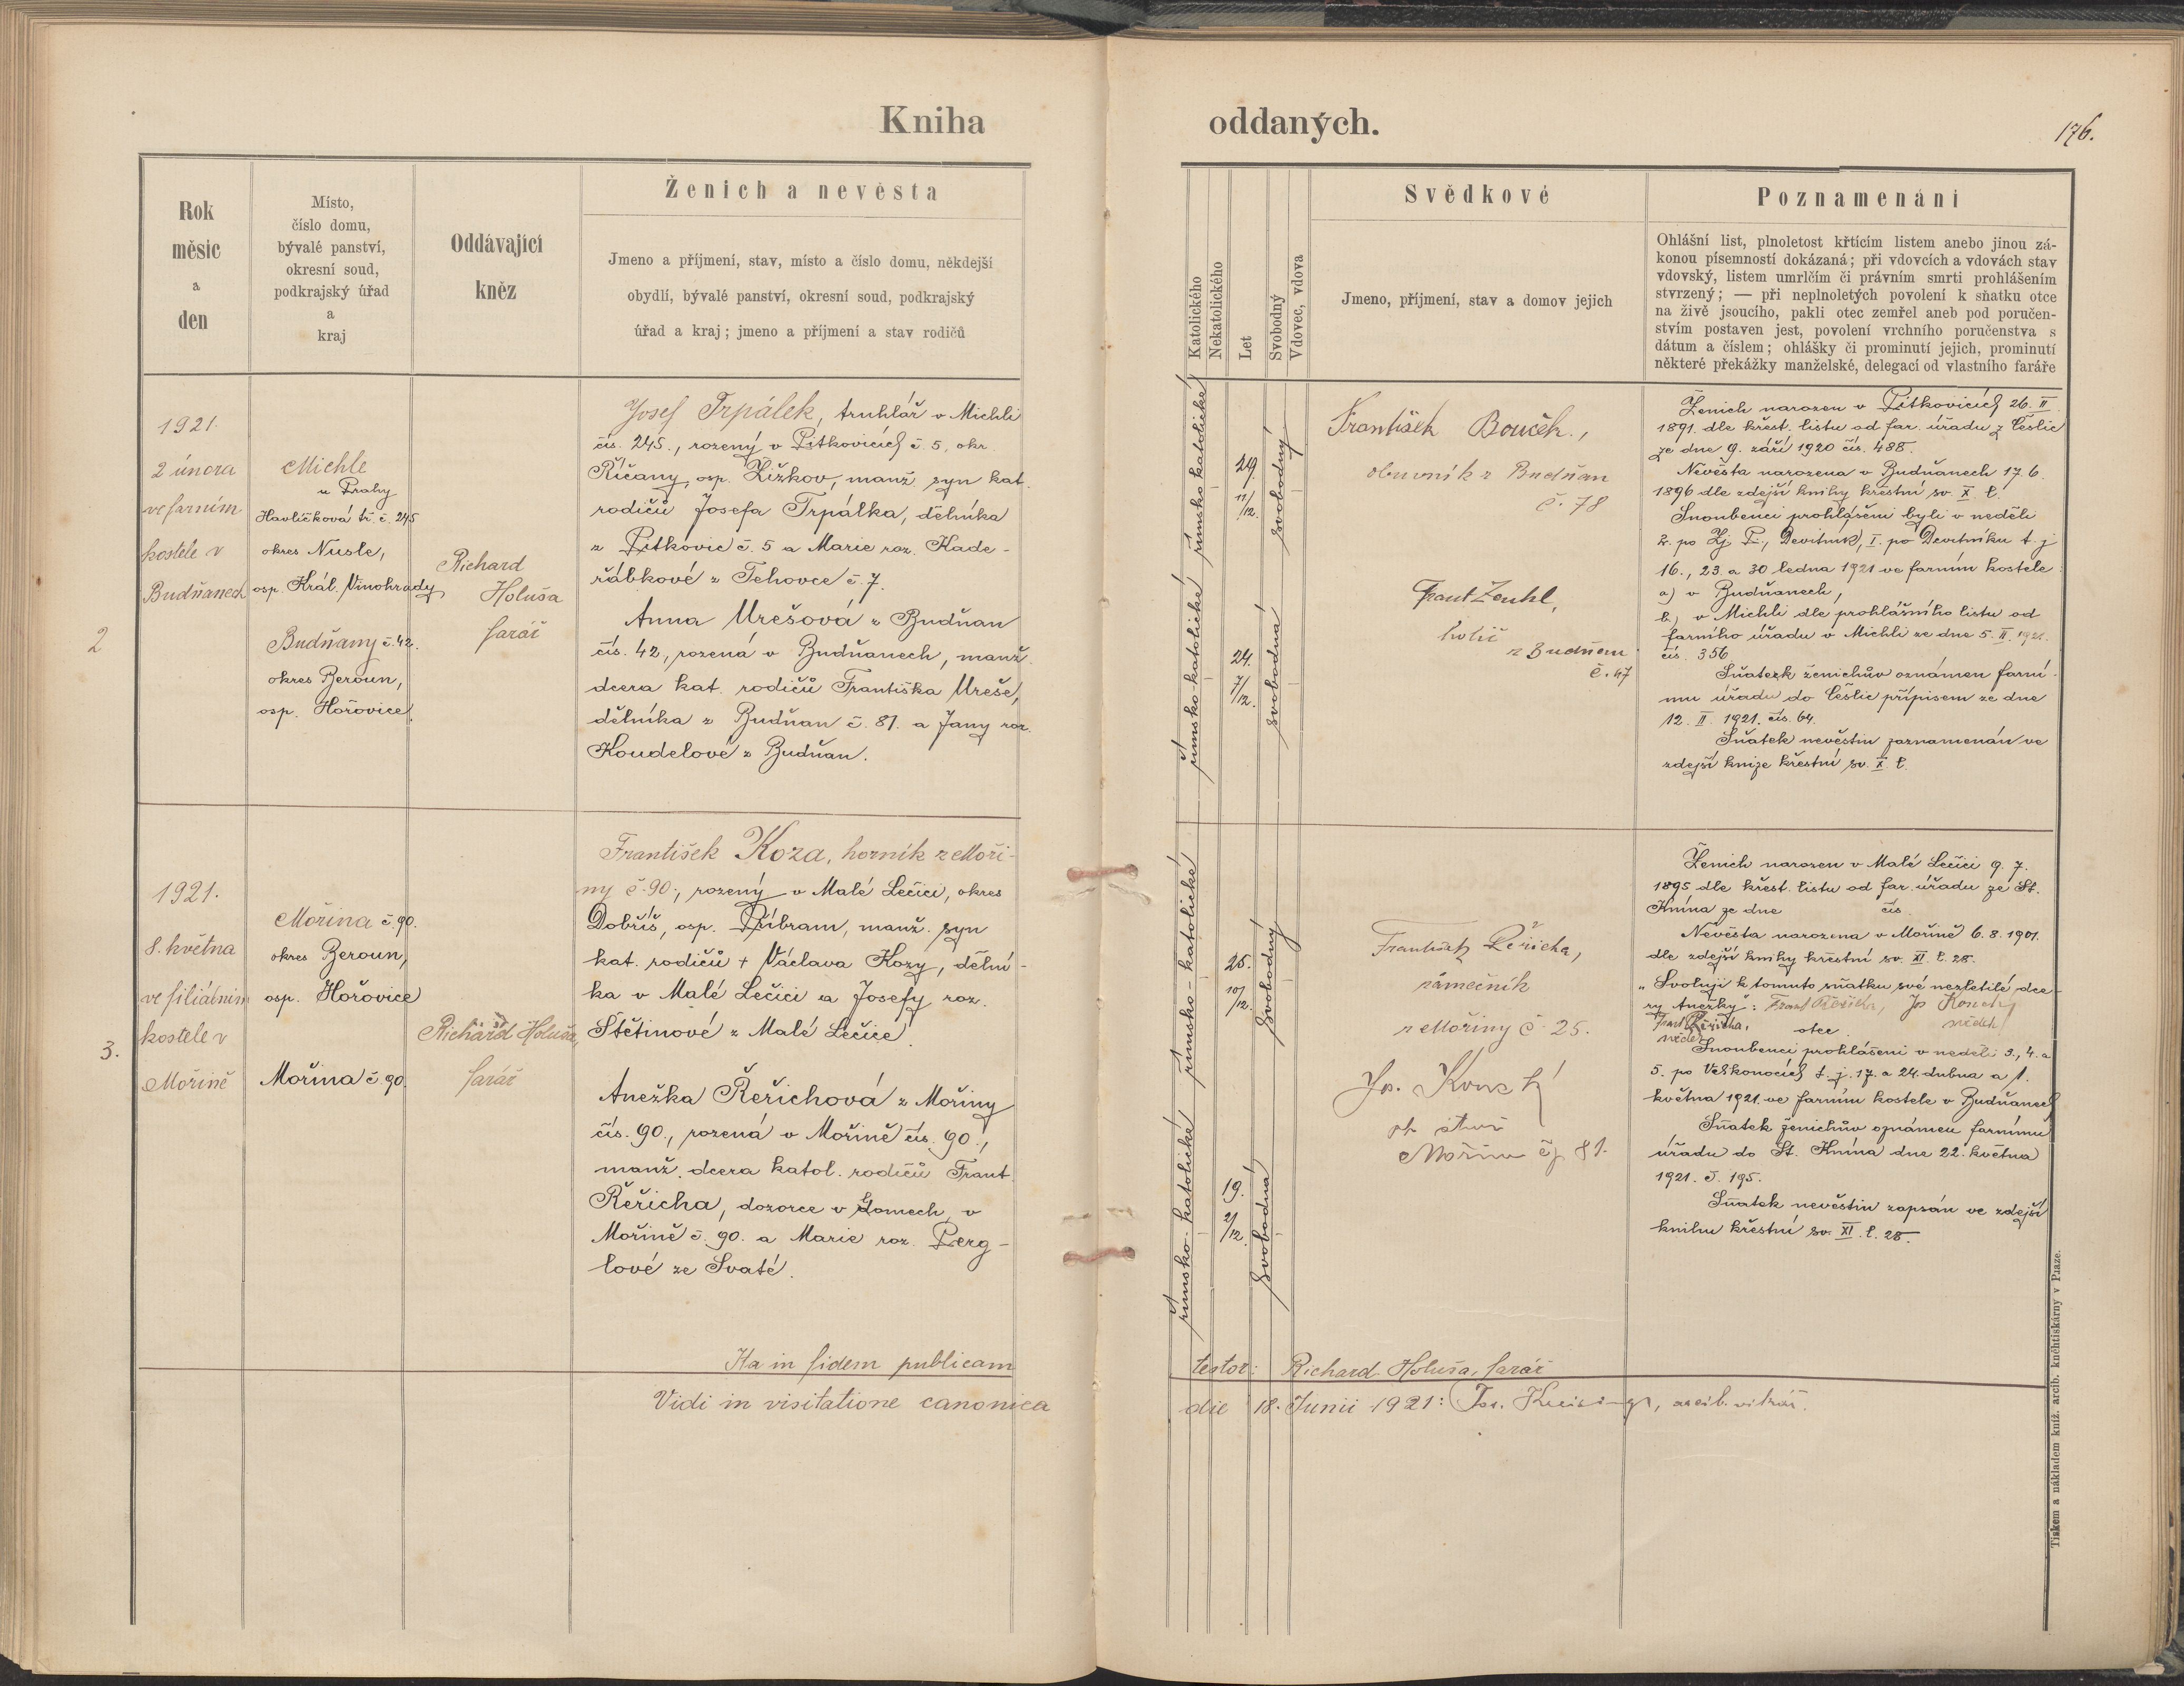 Kniha
oddaných.
176.
Rok
měsíc
a
den
Místo,
číslo domu,
bývalé panství,
okresní soud,
podkrajský úřad
a
kraj
Oddávající
kněz
Ženich a nevěsta
Jmeno a příjmení, stav, místo a číslo domu, někdejší
obydlí, bývalé panství, okresní soud, podkrajský
úřad a kraj; jmeno a příjmení a stav rodičů
Katolického
Nekatolického
Let
Svobodný
Vdovec, vdova
Svědkové
Jmeno, příjmení, stav a domov jejich
Poznamenání
Ohlášní list, plnoletost křtícím listem anebo jinou zá-
konou písemností dokázaná; při vdovcích a vdovách stav
vdovský, listem umrlčím či právním smrti prohlášením
stvrzený; — při neplnoletých povolení k sňatku otce
na živě jsoucího, pakli otec zemřel aneb pod poručen-
stvím postaven jest, povolení vrchního poručenstva s
dátum a číslem; ohlášky či prominutí jejich, prominutí
některé překážky manželské, delegací od vlastního faráře
2
1921.
2 února
ve farním
kostele v
Budňanech
Michle
u Prahy
Havlíčková tř. č. 245
okres Nusle,
osp. Král. Vinohrady
Budňany č. 42.
okres Beroun,
osp. Hořovice.
Richard
Holuša
farář
Josef Trpálek, truhlář v Michli
čís. 245., rozený v Pitkovicích č 5, okr.
Říčany, osp. Žižkov, manž. syn kat.
rodičů Josefa Trpálka, dělníka
z Pitkovic č. 5 a Marie roz. Kade-
řábkové z Tehovce č. 7.
Anna Urešová z Budňan
čís. 42, rozená v Budňanech, manž.
dcera kat. rodičů Františka Ureše,
dělníka z Budňan č. 81. a Jany roz.
Koudelové z Budňan.
římsko katolické
29.
11/12.
svobodný
římsko-katolické
24.
7/12.
svobodná
František Bouček.,
obuvník z Budňan
č. 78
Frant Zeukl,
holič
z Budňan
č. 47
Ženich narozen v Pitkovicích 26. II.
1891. dle křest. listu od far. úřadu z Češlic
ze dne 9. září 1920 čís. 488.
Nevěsta narozena v Budňanech 17. 6.
1896 dle zdejší knihy křestní sv. X. l.
Snoubenci prohlášeni byli v neděli
2. po Zj. Tř., Devítník, I. po Devítníku t. j.
16., 23. a 30 ledna 1921 ve farním kostele:
a) v Budňanech,
b.) v Michli dle prohlášního listu od
farního úřadu v Michli ze dne 5. II. 1921.
čís. 356
Sňatek ženichův oznámen farní-
mu úřadu do Češlic přípisem ze dne
12. II. 1921. čís. 64.
Sňatek nevěstin zaznamenán ve
zdejší knize křestní sv. X. l.
3.
1921.
8. května
ve filiálním
kostele v
Mořině
Mořina č. 90.
okres Beroun,
osp. Hořovice
Mořina č. 90.
Richard Holuša,
farář
František Koza, horník z Moři-
ny č. 90., rozený v Malé Lečici, okres
Dobříš, osp. Příbram, manž. syn
kat. rodičů + Václava Kozy, dělní-
ka v Malé Lečici a Josefy roz.
Štětinové z Malé Lečice.
Anežka Řeřichová z Mořiny
čís. 90., rozená v Mořině čís. 90.,
manž. dcera katol. rodičů Frant.
Řeřicha, dozorce v Lomech, v
Mořině č. 90. a Marie roz. Perg-
lové ze Svaté.
římsko-katolické
25.
10/12.
svobodný
římsko-katolické
19.
9/12.
svobodná
František Řeřicha,
zámečník
z Mořiny č. 25.
Mořina čp 81.
Ženich narozen v Malé Lečici 9. 7.
1895 dle křest. listu od far. úřadu ze St.
Knína ze dne čís.
Nevěsta narozena v Mořině 6. 8. 1901.
dle zdejší knihy křestní sv. XI. l. 28.
„Svoluji k tomuto sňatku své nezletilé dce-
ry Anežky": Frant Řeřicha,
Frant Řeřicha, otec. svědek
svědek
Snoubenci prohlášeni v neděli 3., 4. a
5. po Velkonocích t. j. 17. a 24. dubna a 1.
května 1921. ve farním kostele v Budňanech
Sňatek ženichův oznámen farnímu
úřadu do St. Knína dne 22. května
1921. č. 195.
Sňatek nevěstin zapsán ve zdejší
knihu křestní sv. XI. l. 28.
Ita in fidem publicam
testor: Richard Holuša, farář
Vidi in visitatione canonica
die 18. Junii 1921: arcib. vikář.
Tiskem a nákladem kníž. arcib. kněhtiskárny v Praze.